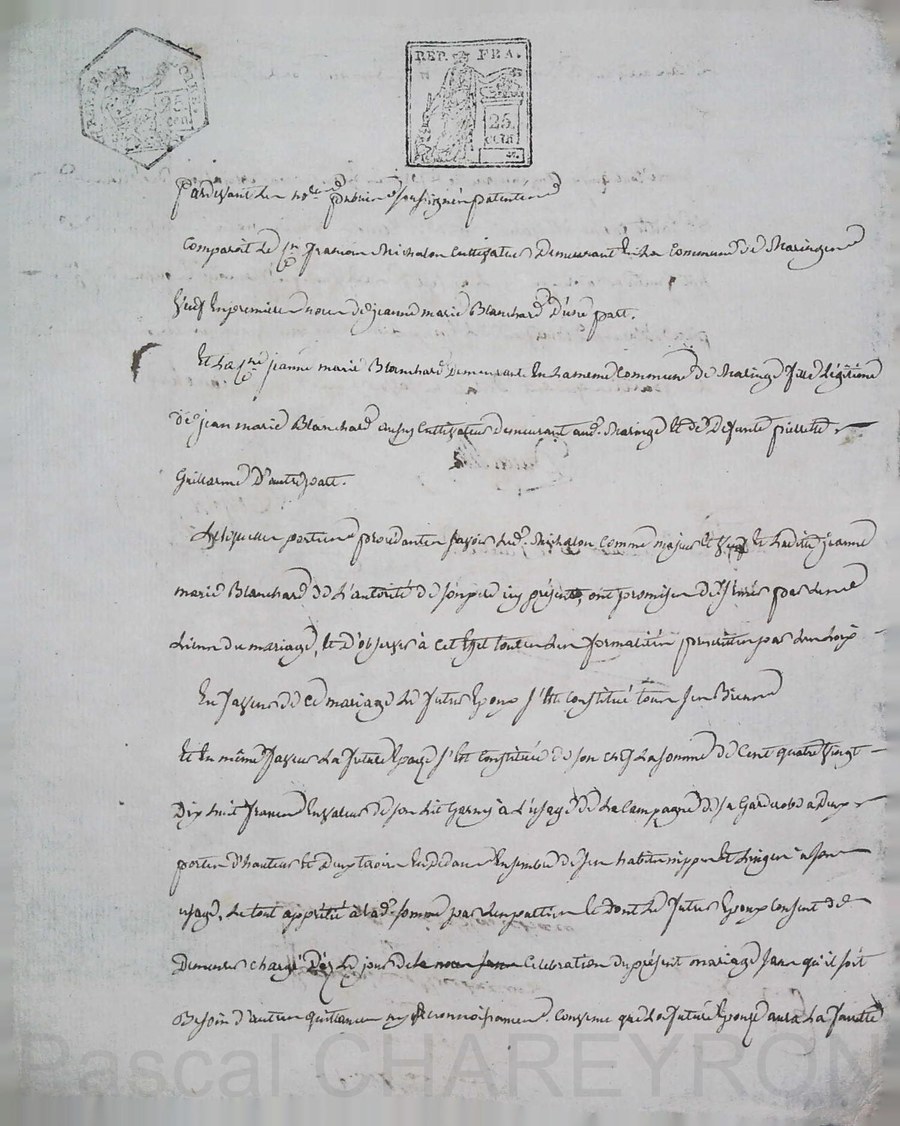 REP. FRA. 25 cen
REP. FRA.
25.
cen
Pardevant les no.re publics soussignés patentés
Comparait Le s.r francois Michalon Cultivateur Demeurant En La Commune de Maringes
Veuf En premieres noces de jeanne marie Blanchard D'une part.
Et La s.ne jeanne marie Blanchard Demeurant En La meme Commune de Maringe fille Légitime
de jean marie Blanchard aussy Cultivateur demeurant aud. Maringe Et de Defunte pierrette
Guillarme D'autre part.
Lesquelles parties procedantes savoir Led. Michalon Comme majeur Et Veuf Et Ladite jeanne
marie Blanchard de L'autorité de son pere icy présent, ont promis de s'unir par Les
Liens du mariage, Et d'observer à Cet Effet toutes Les formalités prescrites par Les Loix
En faveur de Ce mariage Le futur Epoux s'Est Constitué tous ses Biens
Et En même faveur La future Epouse s'Est Constituée de son chef La somme de Cent quatre Vingt
Dix huit francs En valeur de son Lit Garny à L'usage de La Campagne de sa Garderobe a deux
portes d'hauteur Et deux tiroirs En dedans Ensemble de ses habits nippes Et Linges a son
usage, Le tout apprétié à Lad. somme par Les parties Et dont Le futur Epoux Consent de
Demeurer chargé Dès Le jour de la Celebration du présent mariage sans qu'il soit
Besoin d'autres quittances ny Reconnoissances. Convenu que La future Epouse aura La faculté
Pascal CHAREYRON